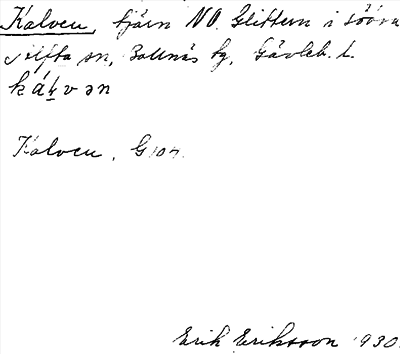 Kalven, tjärn NO. Glittern i södra
silfta sn, Bollnäs kg, Gävleb. l.
káḷvən
Kalven, G107.
Erik Eriksson 1930.